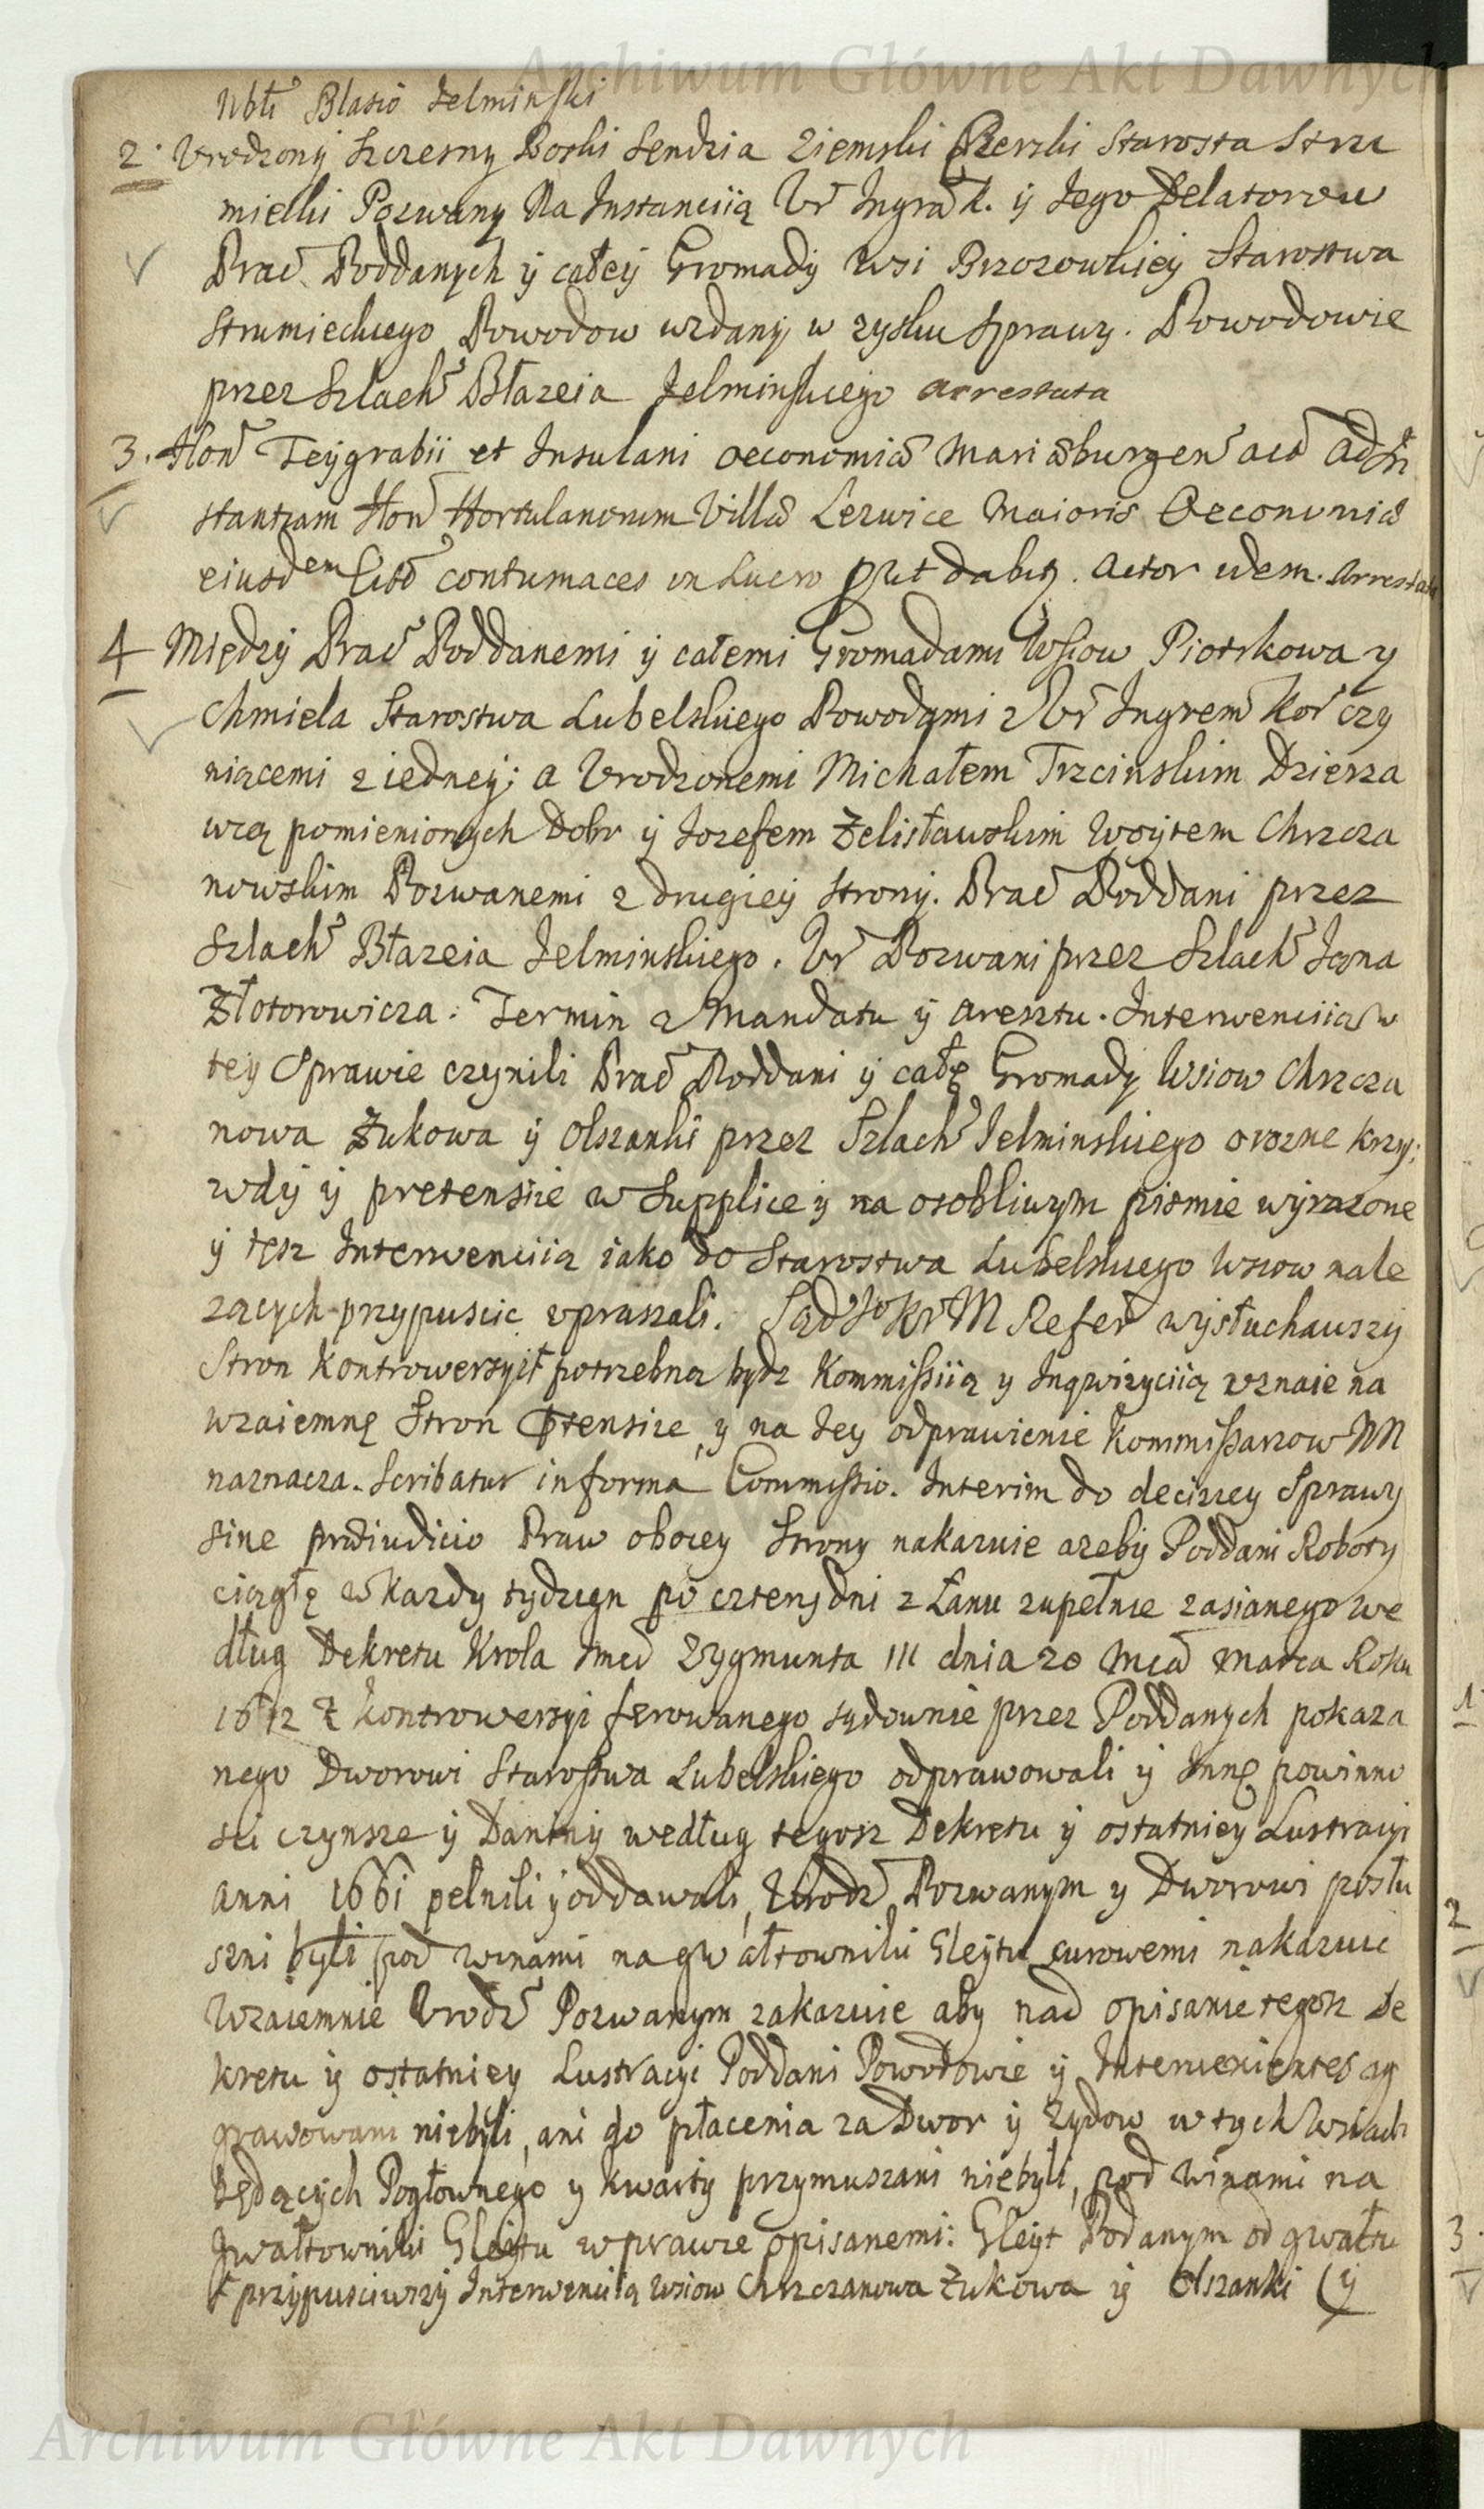 Archiwum Główne Akt Dawnych
Nbłi Blasio Jelminski
2. Vrodzony Szczesny Boski Sendzia Ziemski Czerski Starosta Stru
mielki Pozwany Na Instanciią Vr Ingra K. ÿ Jego Delatorow
Prac Poddanych ÿ całeÿ Gromadÿ Wsi Brzozowkieÿ Starostwa
Strumieckiego Powodow wzdanÿ w zysku Sprawy. Powodowie
przez Szlach Błazeia Jelminskiego arrestata
3. Hon Teÿgrabii et Insulani oeconomiæ Mariæburgen ac ad In
stantiam Hon Hortulanorum Villæ Lezwice Maioris Oeconomiæ
eiusdem Citt contumaces in Lucro prt dabitz. Actor idem. Arrestata
4 Międzÿ Prac Poddanemi ÿ całemi Gromadami Wsiow Piotrkowa y
Chmiela Starostwa Lubelskiego Powodami z Vr Ingrem Kor czy
niącemi z iedneÿ; a Vrodzonemi Michałem Trzcinskim Dzierza
wcą pomienionych Dobr ÿ Jozefem Zelisławskim Woÿtem Chrzcza
nowskim Pozwanemi z drugieÿ Stronÿ. Prac Poddani przez
Szlach Błazeia Jelminskiego. Vr Pozwani przez Szlach Jana
Złotorowicza: Termin z Mandatu ÿ aresztu. Interwenciią w
teÿ Sprawie czÿnili Prac Poddani ÿ całę Gromadÿ Wsiow Chrzcza
nowa Zukowa ÿ Olszanki przez Szlach Jelminskiego o rozne krzy:
wdÿ ÿ pretensie w Supplice ÿ na osobliwym pismie wÿrazone
ÿ tęsz Interwenciią iako do Starostwa Lubelskiego Wsiow nale
zących przypuscic vpraszali. Sąd Jo Kr M Refer wÿsłuchawszÿ
Stron Kontrowersyi ⸸ potrzebną bydz Kommissiią y Inqwizyciią vznaie na
wzaiemnę Stron Ptensie, y na Jey odprawienie Kommissarzow NN
naznacza. Scribatur in forma Commissio. Interim do deciziey Sprawy
sine præiudicio Praw oboiey Strony nakazuie azebÿ Poddani Roboty
ciągłę w Kazdy tydzień po czterÿ dni z Łanu zupełnie zasianego we
dług Dekretu Krola Jmci Zygmunta III dnia 20 Mca Marca Roku
1612 z Kontrowersyi ferowanego sądownie przez Poddanych pokaza
nego Dworowi Starostwa Lubelskiego odprawowali ÿ Innę powinno
sci czynsze ÿ Daninÿ według tegosz Dekretu ÿ ostatnieÿ Lustracyi
anni 1661 pełnili ÿ oddawali, Vrodz Pozwanym y Dworowi posłu
szni bÿli pod winami na gwałtowniki Gleÿtu surowemi nakazuie
Wzaiemnie Vrodz Pozwanym zakazuie aby nad opisanie tegosz De
kretu ÿ ostatnieÿ Lustracyi Poddani Powodowie ÿ Intervenientes ag
grawowani niebÿli, ani do płacenia za Dwor ÿ Zydow w tych Wsiach
będących Pogłownego y kwartÿ przymuszani niebyli, pod winami na
gwałtowniki Gleÿtu w prawie opisanemi: Gleÿt Podanym od gwałtu
⸸ przÿpusciwszÿ Interwenciią Wsiow Chrzczanowa Zukowa ÿ Olszanki (ÿ
1
2
3
Archiwum Główne Akt Dawnych